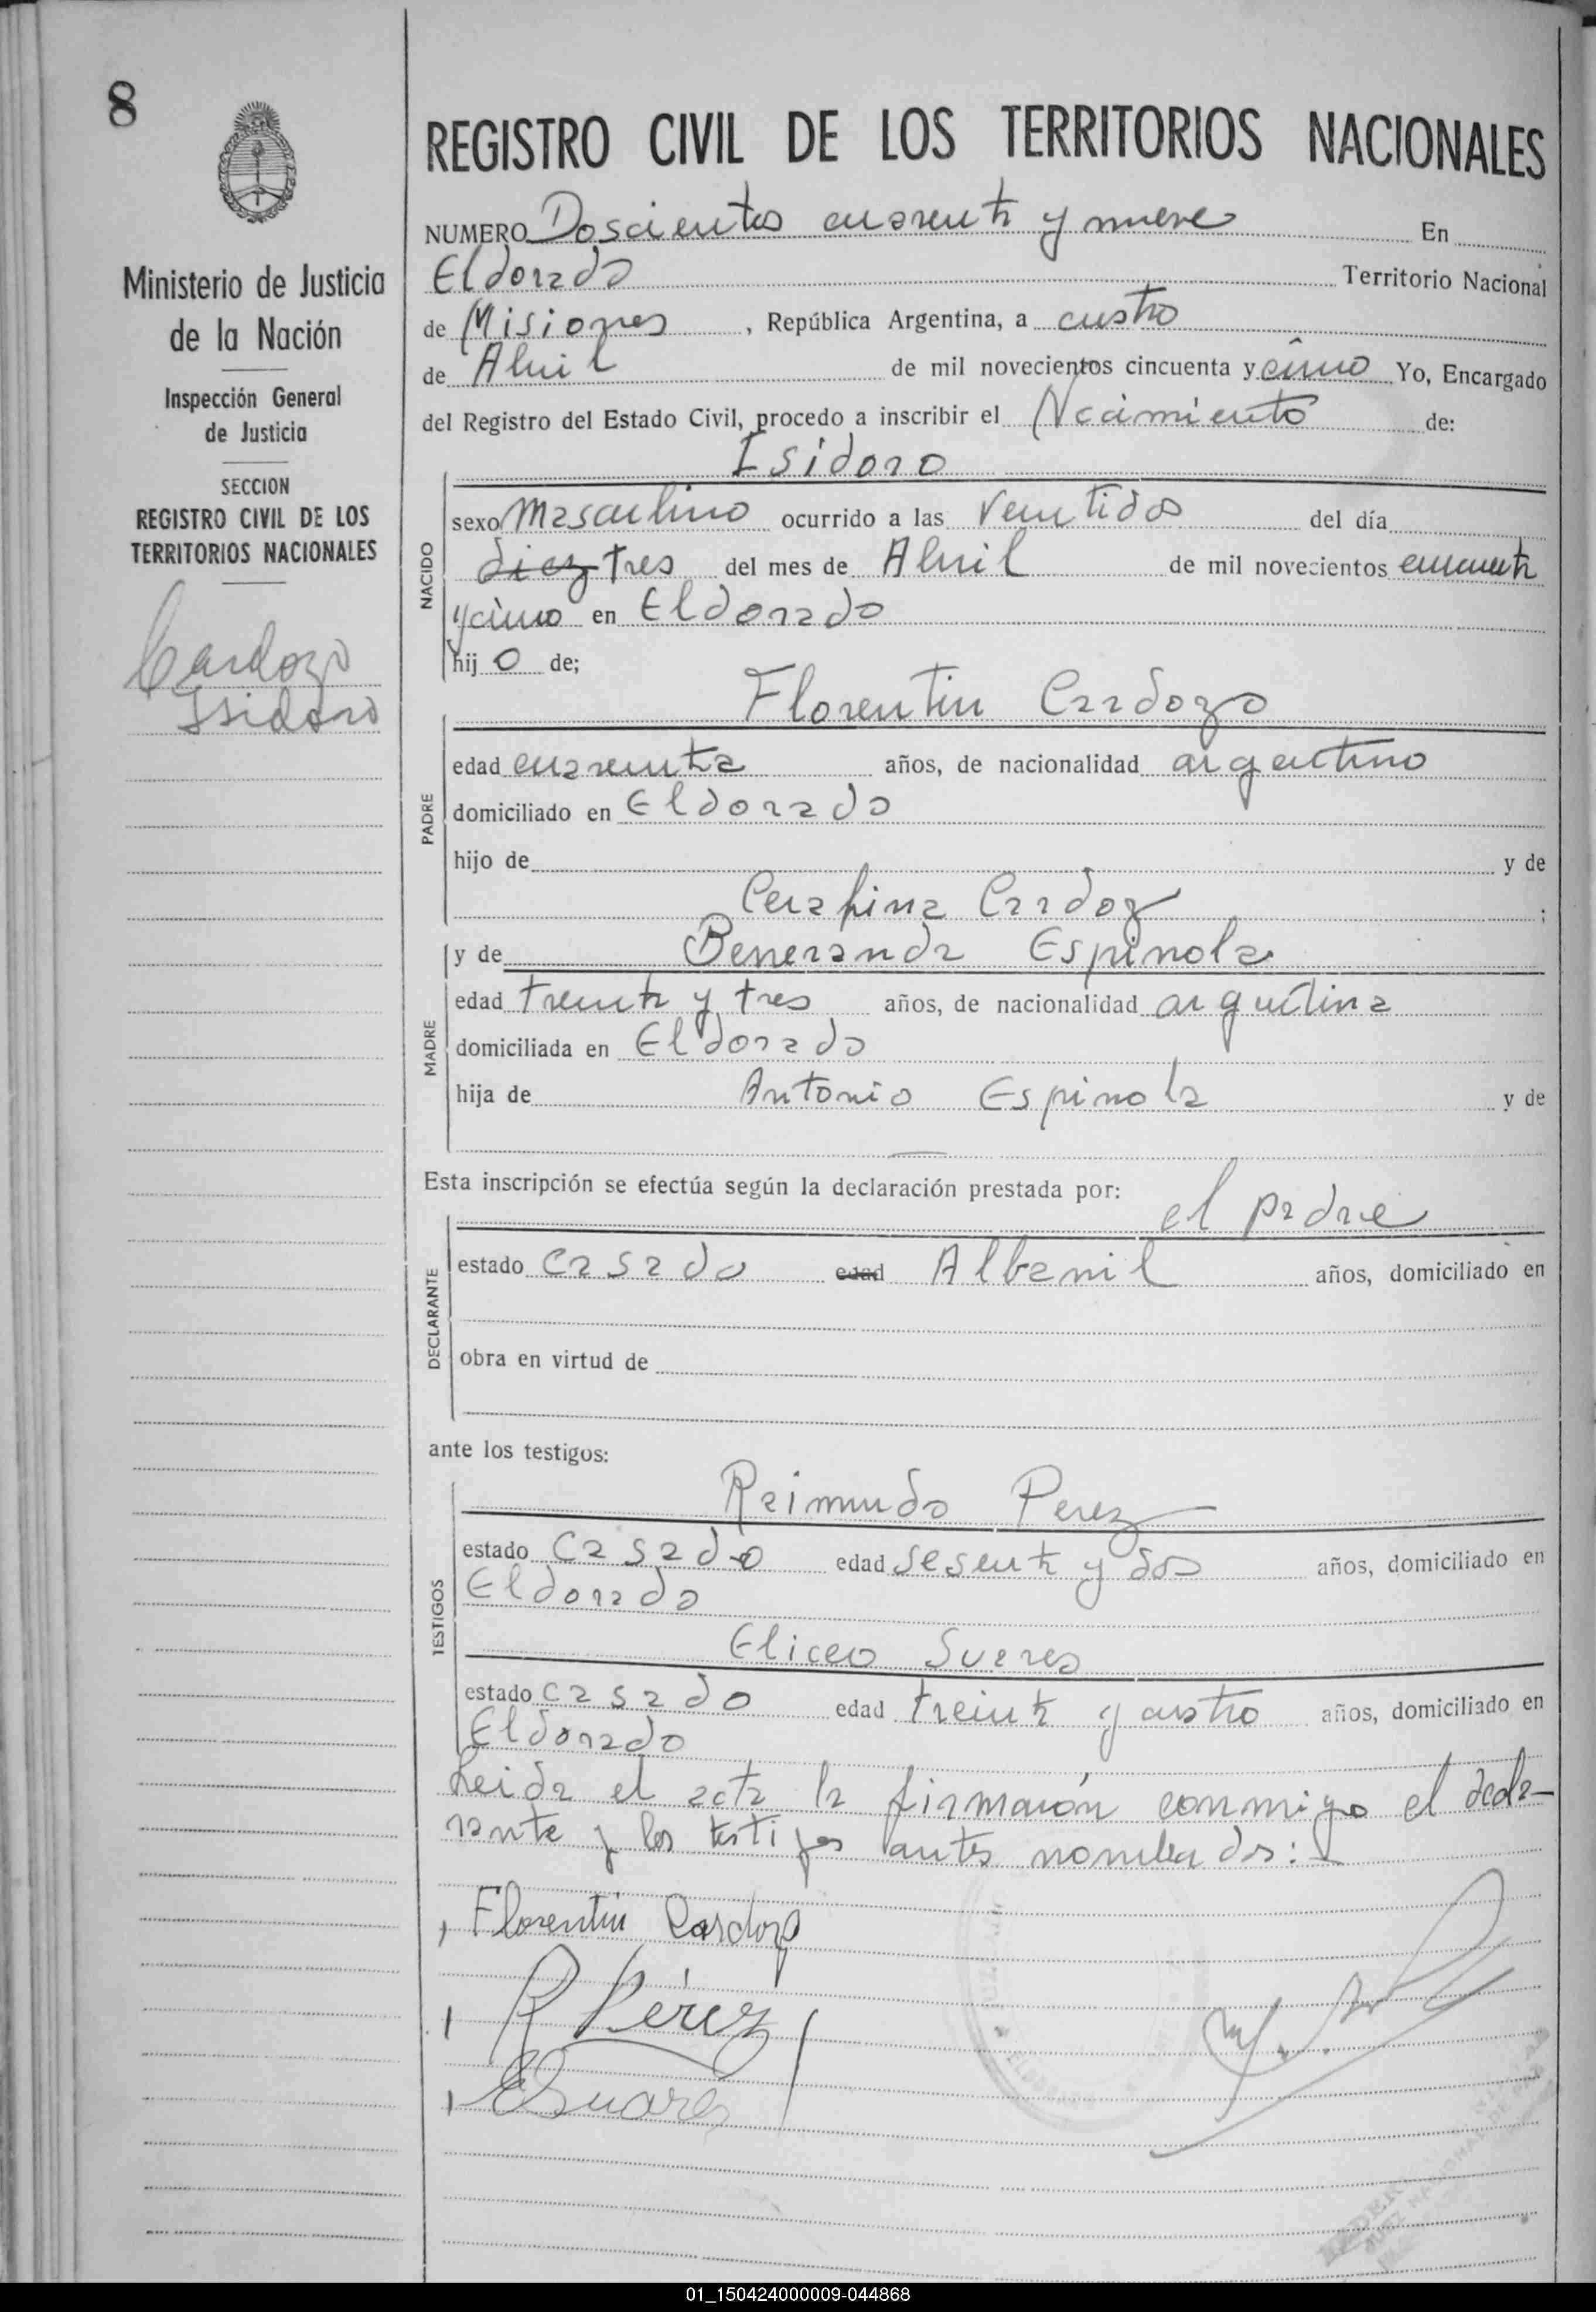 8
REGISTRO CIVIL DE LOS TERRITORIOS NACIONALES
Ministerio de Justicia
de la Nación
Inspección General
de Justicia
SECCION
REGISTRO CIVIL DE LOS
TERRITORIOS NACIONALES
Cardozo
Isidoro
NUMERO Doscientos cuarenta y nueve En
Eldorado Territorio Nacional
de Misiones, República Argentina, a cuatro
de Abril de mil novecientos cincuenta y cinco Yo, Encargado
del Registro del Estado Civil, procedo a inscribir el Nacimiento de:
NACIDO
Isidoro
sexo Masculino ocurrido a las Veintidos del día
diez tres del mes de Abril de mil novecientos cincuenta
y cinco en Eldorado
hijo de;
PADRE
Florentin Cardozo
edad cuarenta años, de nacionalidad argentino
domiciliado en Eldorado
hijo de y de
Cerafina Cardoz;
MADRE
y de Beneranda Espinola
edad treinta y tres años, de nacionalidad argentina
domiciliada en Eldorado
hija de Antonio Espinola y de
Esta inscripción se efectúa según la declaración prestada por:
DECLARANTE
el padre
estado casado edad Albanil años, domiciliado en
obra en virtud de
ante los testigos:
TESTIGOS
Raimundo Perez
estado casado edad sesenta y dos años, domiciliado en
Eldorado
Eliceo Suares
estado casado edad treinta y cuatro años, domiciliado en
Eldorado
Leida el acta la firmaron conmigo el decla-
rante y los testigos antes nombrados:
Florentin Cardozo
R Pérez
E Suares
01_150424000009-044868